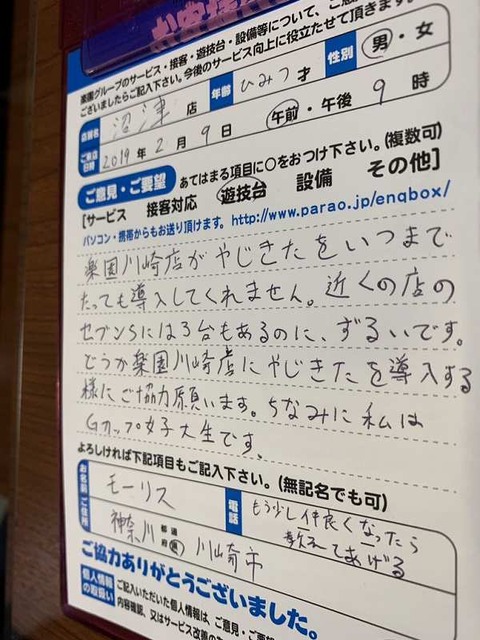 楽園グループのサービス・接客・遊技台・設備等について、ご意
ございましたらご記入下さい。今後のサービス向上に役立たせて頂きます。
店舗名 沼津 店 年齢 ひみつ 才 性別 男・女
ご来店日時 2019年 2月 9日 午前・午後 9時
ご意見・ご要望 あてはまる項目に○をおつけ下さい。(複数可)
[サービス 接客対応 遊技台 設備 その他]
パソコン・携帯からもお送り頂けます。http://www.parao.jp/enqbox/
楽園川崎店がやじきたをいつまで
たっても導入してくれません。近くの店の
セブンSには3台もあるのに、ずるいです。
どうか楽園川崎店にやじきたを導入する
様にご協力願います。ちなみに私は
Gカップ女子大生です。
よろしければ下記項目もご記入下さい。(無記名でも可)
お名前 モーリス 電話 もう少し仲良くなったら
教えてあげる
ご住所 神奈川 都道府県 川崎市
ご協力ありがとうございました。
個人情報の取扱い ご記入いただいた個人情報は、ご意見・ご要望
内容確認、又はサービス改善の